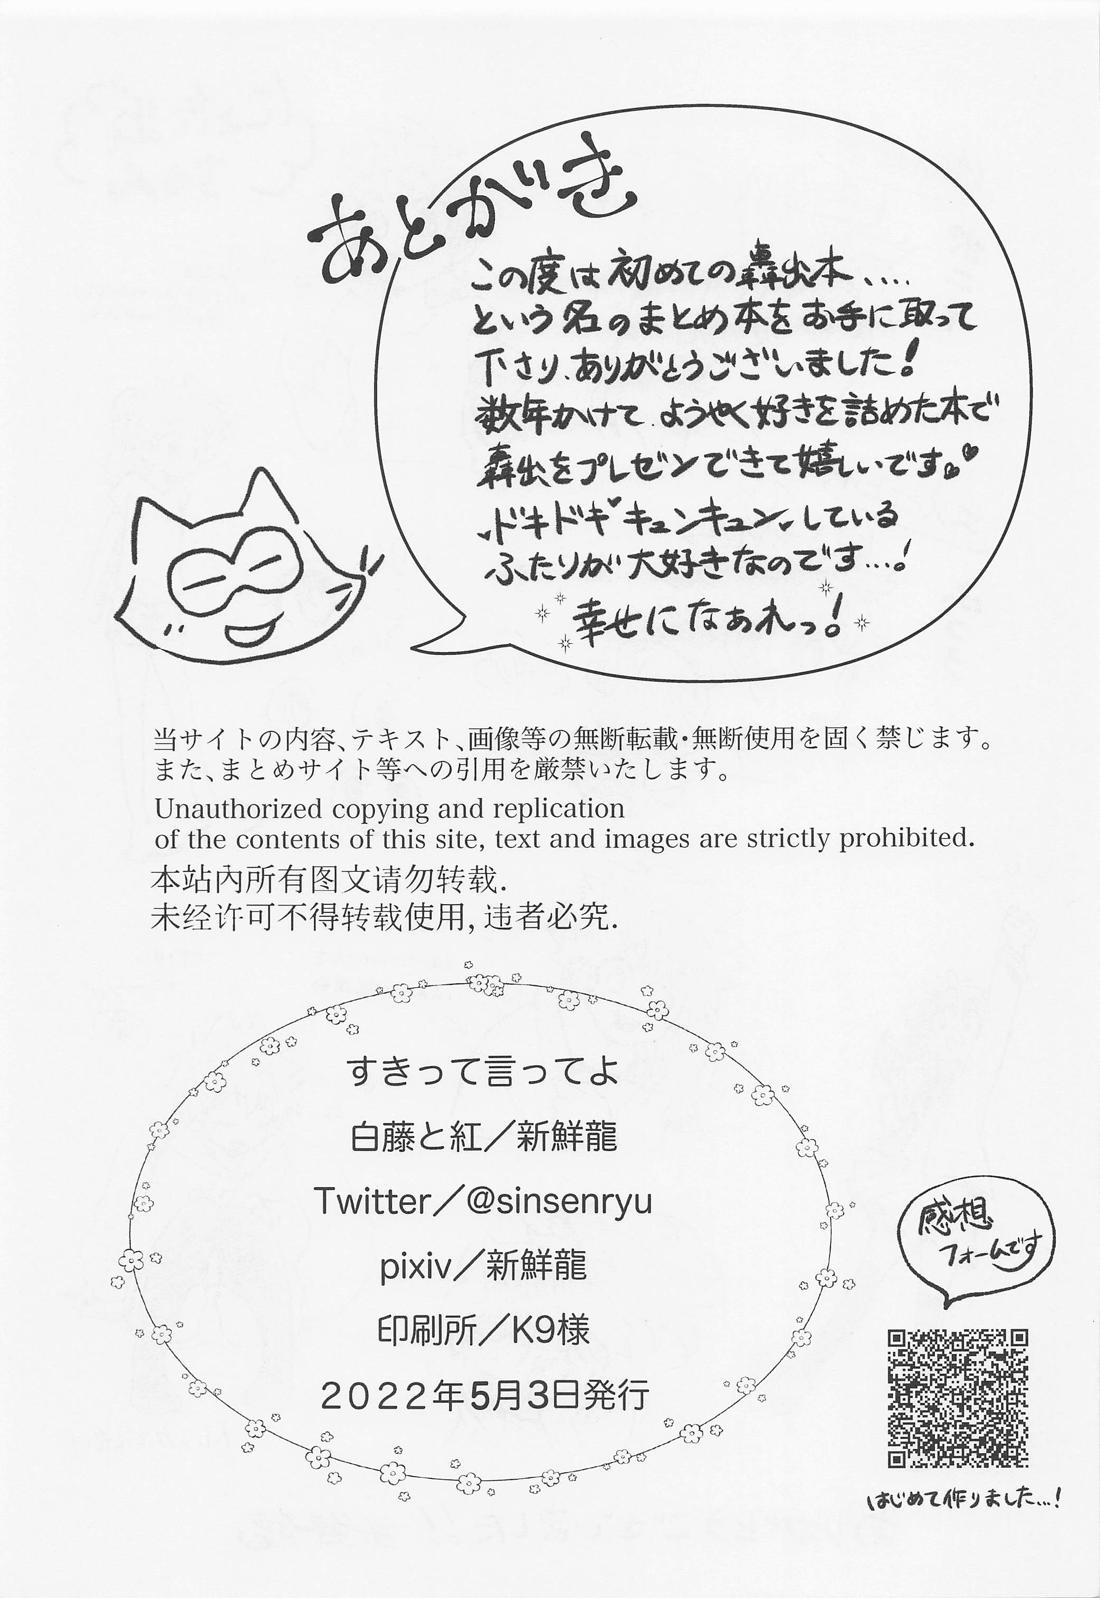 あとがき
この度は初めての轟出本....
という名のまとめ本をお手に取って
下さり、ありがとうございました!
数年かけて、ようやく好きを詰めた本で
轟出をプレゼンできて嬉しいです♥
ドキドキ♥キュンキュン♥している
ふたりが大好きなのです...!
幸せになぁれっ!
当サイトの内容、テキスト、画像等の無断転載・無断使用を固く禁じます。
また、まとめサイト等への引用を厳禁いたします。
Unauthorized copying and replication
of the contents of this site, text and images are strictly prohibited.
本站内所有图文请勿转载.
未经许可不得转载使用, 违者必究.
すきって言ってよ
白藤と紅／新鮮龍
Twitter／@sinsenryu
pixiv／新鮮龍
印刷所／K9様
2022年5月3日発行
感想
フォームです
はじめて作りました...!